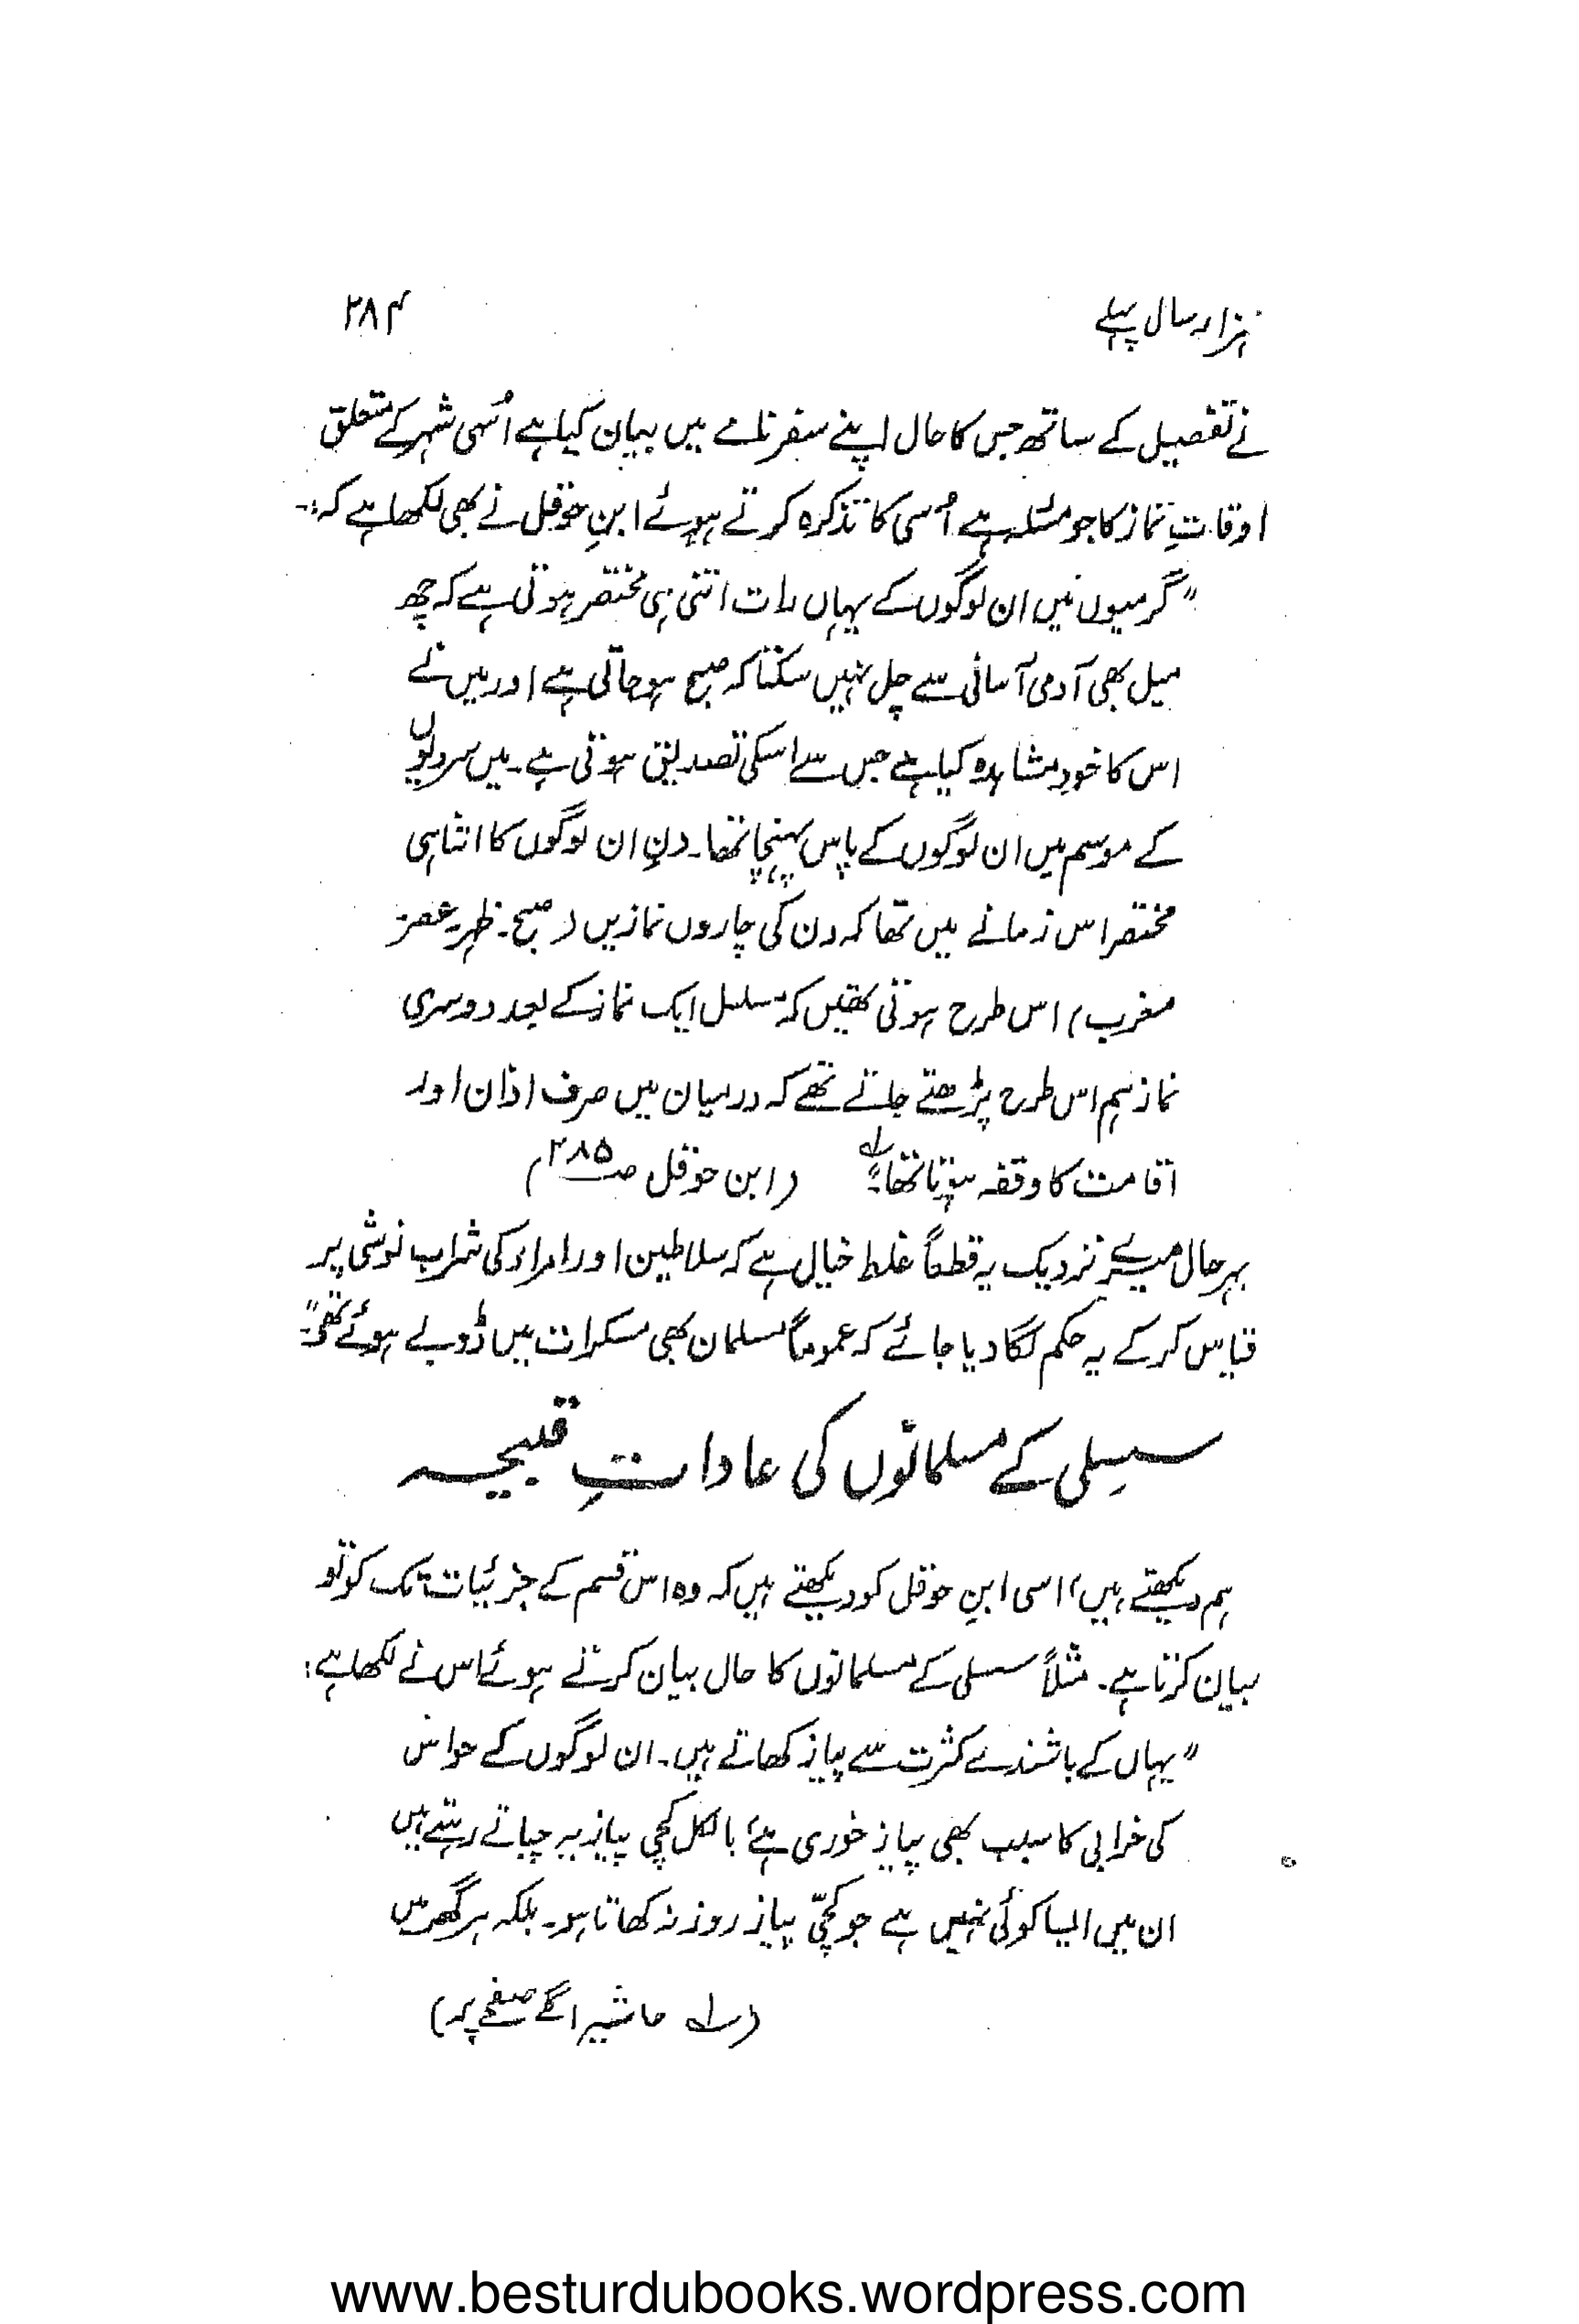 ہزار سال پہلے ۲۸۴
نے تفصیل کے ساتھ جس کا حال اپنے سفر نامے میں بیان کیا ہے اُسی شہر کے متعلق
اوقاتِ نماز کا جو مسئلہ ہے اُسی کا تذکرہ کرتے ہوئے ابنِ حوقل نے بھی لکھا ہے کہ:۔
"گرمیوں میں ان لوگوں کے یہاں رات اتنی ہی مختصر ہوتی ہے کہ چھ
میل بھی آدمی آسانی سے چل نہیں سکتا کہ صبح ہو جاتی ہے اور میں نے
اس کا خود مشاہدہ کیا ہے جس سے اسکی تصدیق ہوتی ہے۔ میں سردیوں
کے موسم میں ان لوگوں کے پاس پہنچا تھا۔ دن ان لوگوں کا اتنا ہی
مختصر اس زمانے میں تھا کہ دن کی چاروں نمازیں (صبح۔ ظہر۔ عصر
مغرب) اس طرح ہوتی تھیں کہ مسلسل ایک نماز کے بعد دوسری
نماز ہم اس طرح پڑھتے جاتے تھے کہ درمیان میں صرف اذان اور
اقامت کا وقفہ ہوتا تھا۔"لہ (ابن حوقل صـ۲۸۵)
بہرحال میرے نزدیک یہ قطعاً غلط خیال ہے کہ سلاطین اور امراء کی شراب نوشی پر
قیاس کر کے یہ حکم لگا دیا جائے کہ عموماً مسلمان بھی مسکرات میں ڈوبے ہوئے تھے۔"
سسلی کے مسلمانوں کی عاداتِ قبیحہ
ہم دیکھتے ہیں، اسی ابنِ حوقل کو دیکھتے ہیں کہ وہ اس قسم کے جزئیات تک کو تو
بیان کرتا ہے۔ مثلاً سسلی کے مسلمانوں کا حال بیان کرتے ہوئے اس نے لکھا ہے:
"یہاں کے باشندے کثرت سے پیاز کھاتے ہیں۔ ان لوگوں کے حواس
کی خرابی کا سبب بھی پیاز خوری ہے، بالکل کچی پیاز یہ چباتے رہتے ہیں
ان میں ایسا کوئی نہیں ہے جو کچّی پیاز روز نہ کھاتا ہو۔ بلکہ ہر گھر میں
(لہ حاشیہ اگلے صفحے پر)
www.besturdubooks.wordpress.com